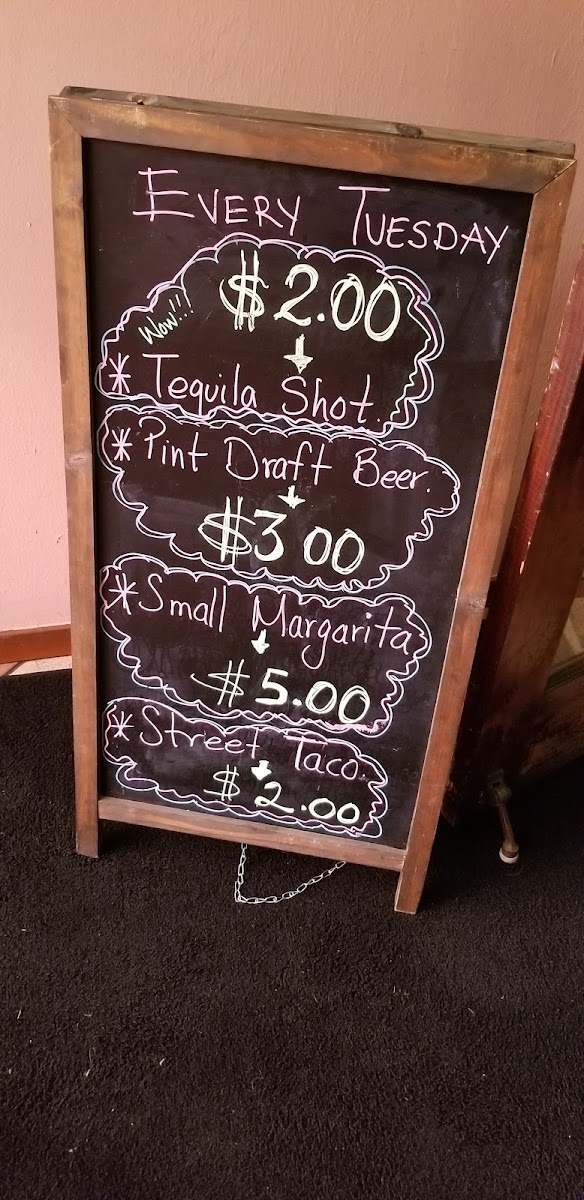 EVERY TUESDAY
$2.00
Wow!!!
* Tequila Shot.
* Pint Draft Beer.
$3.00
* Small Margarita
$5.00
* Street Taco.
$2.00